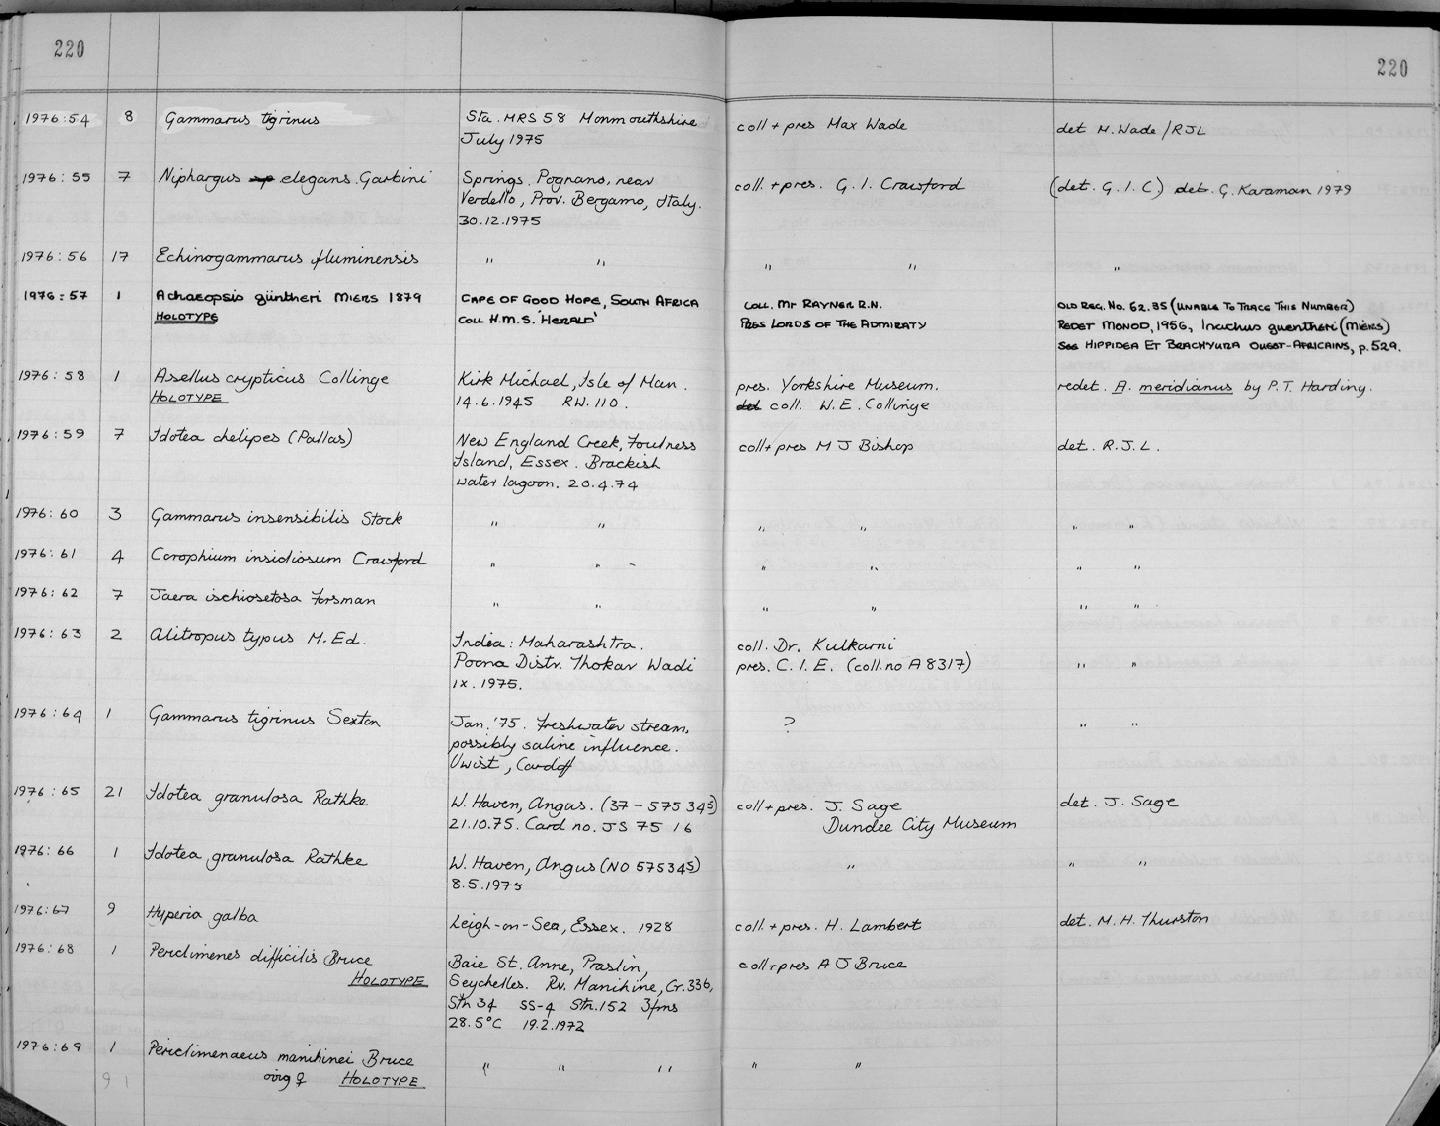 220
220
1976:54 8 Gammarus tigrinus Sta. MRS 58 Monmouthshire coll + pres Max Wade det M. Wade / RJL
July 1975
1976:55 7 Niphargus elegans Garbini Springs. Pognano, near coll. + pres. G. I. Crawford (det. G. I. C) det. G. Karaman 1979
Verdello, Prov. Bergamo, Italy.
30.12.1975
1976:56 17 Echinogammarus fluminensis " " " " "
1976:57 1 Achaeopsis güntheri MIERS 1879 CAPE OF GOOD HOPE, SOUTH AFRICA COLL. Mr RAYNER R.N. OLD REG. No. 62.35 (UNABLE TO TRACE THIS NUMBER)
HOLOTYPE COLL H.M.S. 'HERALD' PRES LORDS OF THE ADMIRATY REDET MONOD, 1956, Inachus guentheri (MIERS)
See HIPPIDEA ET BRACHYURA OUEST-AFRICAINS, p. 529.
1976:58 1 Asellus crypticus Collinge Kirk Michael, Isle of Man. pres. Yorkshire Museum. redet. A. meridianus by P.T. Harding.
HOLOTYPE 14.6.1945 RW. 110. det coll. W. E. Collinge
1976:59 7 Idotea chelipes (Pallas) New England Creek, Foulness coll + pres M J Bishop det. R.J.L.
Island, Essex. Brackish
water lagoon. 20.4.74
1976:60 3 Gammarus insensibilis Stock " " " " " "
1976:61 4 Corophium insidiosum Crawford " " " " " "
1976:62 7 Jaera ischiosetosa Forsman " " " " " "
1976:63 2 Alitropus typus M. Ed. India: Maharashtra. coll. Dr. Kulkarni
Poona Distr. Thokar Wadi pres. C. I. E. (coll. no A 8317) " "
IX. 1975.
1976:64 1 Gammarus tigrinus Sexton Jan. '75. Freshwater stream, ? " "
possibly saline influence.
Uwist, Cardiff
1976:65 21 Idotea granulosa Rathke W. Haven, Angus. (37 - 575 345) coll + pres. J. Sage det. J. Sage
21.10.75. Card no. JS 75 16 Dundee City Museum
1976:66 1 Idotea granulosa Rathke W. Haven, Angus (NO 575345) " " "
8.5.1975
1976:67 9 Hyperia galba Leigh-on-Sea, Essex. 1928 coll. + pres. H. Lambert det. M. H. Thurston
1976:68 1 Periclimenes difficilis Bruce Baie St. Anne, Praslin, coll + pres A J Bruce
HOLOTYPE Seychelles. Rv. Manihine, Cr. 336,
Stn 34 SS-4 Stn. 152 3fms
28.5°C 19.2.1972
1976:69 1 Periclimenaeus manihinei Bruce " " " " "
ovig ♀ HOLOTYPE
91